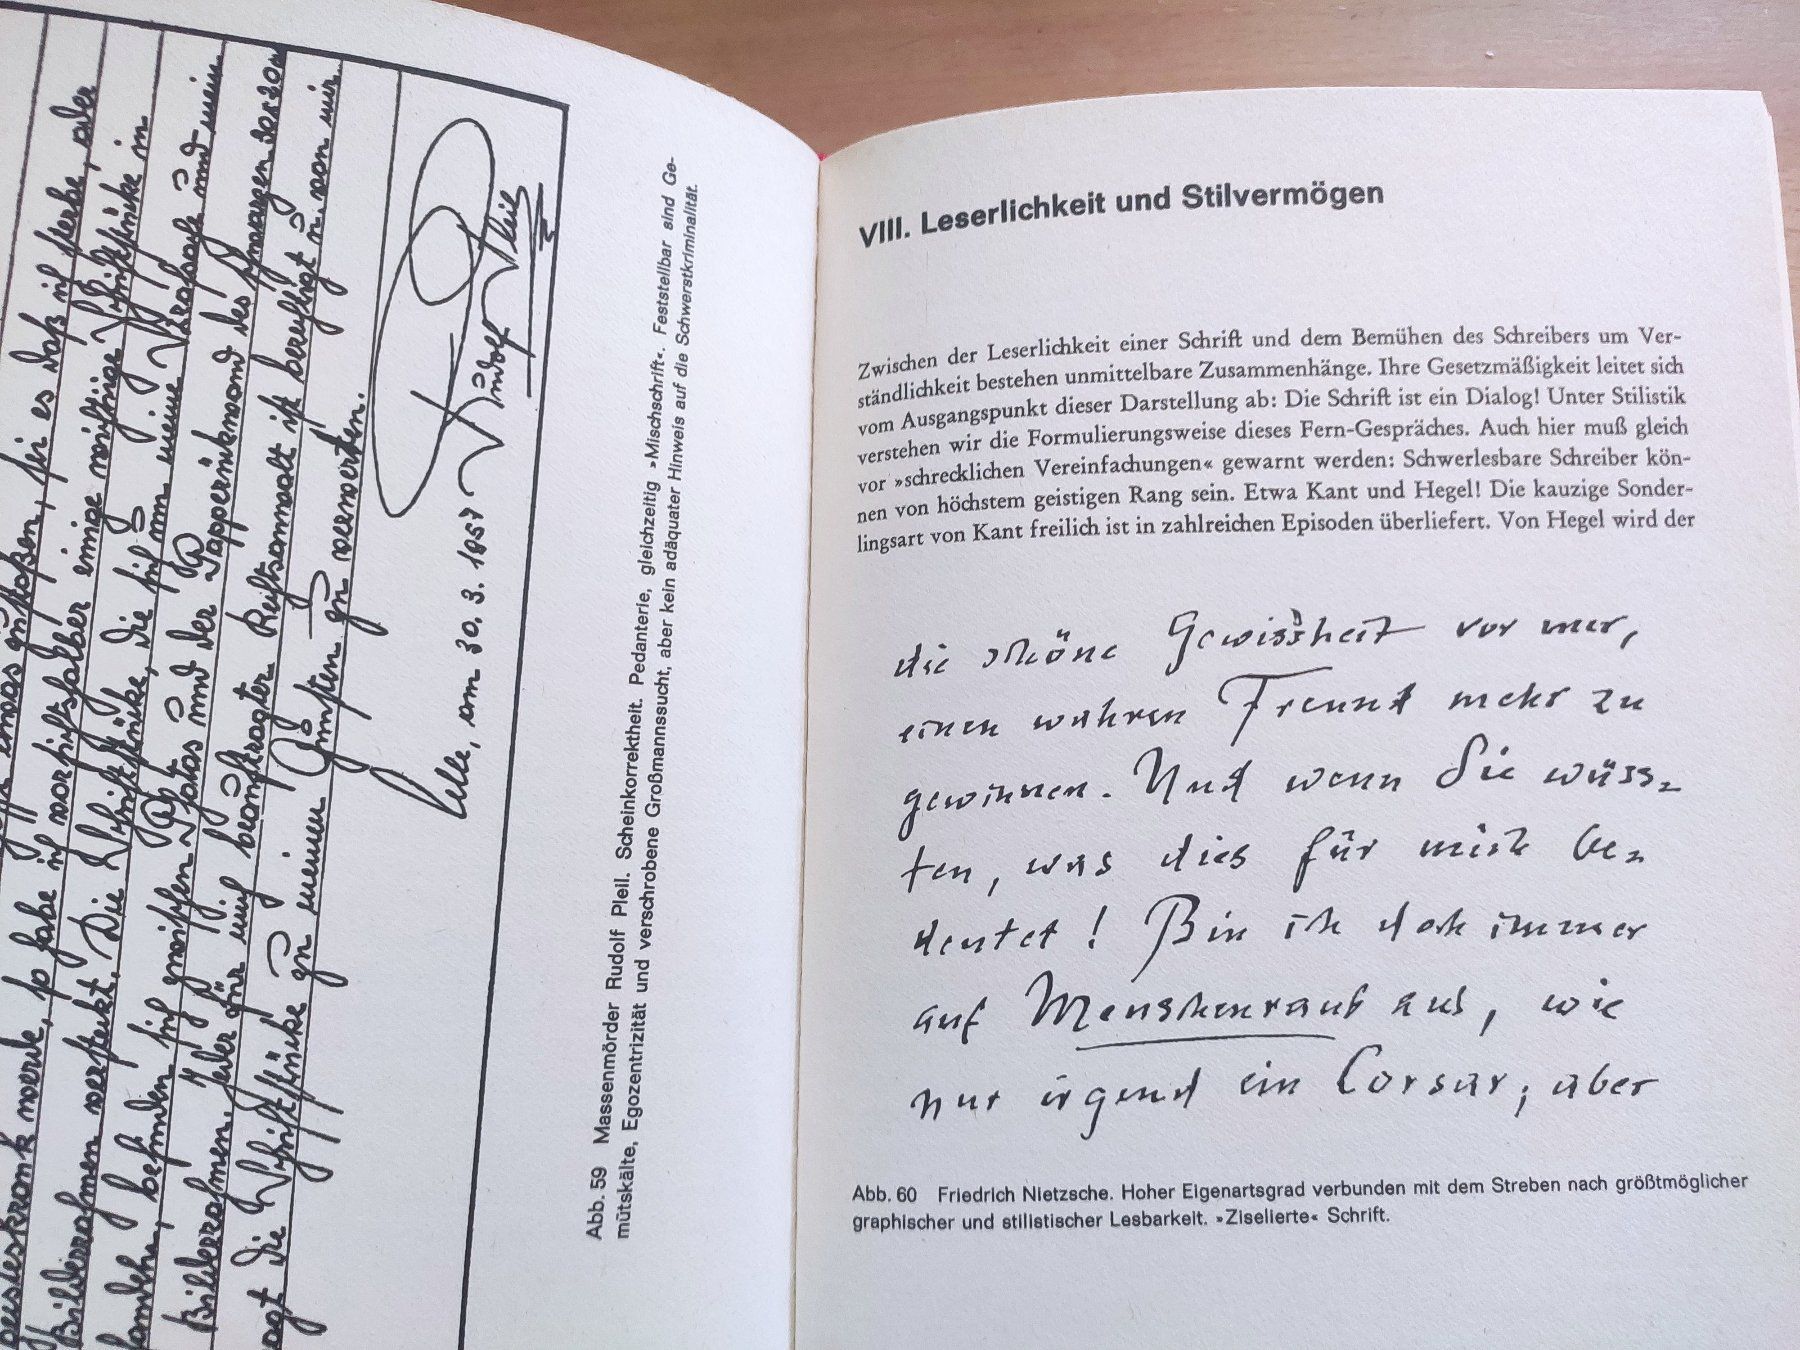 geisteskrank werde, so habe ich vorsichtshalber einige wichtige Schriftstücke in
Bilderrahmen versteckt. Die Schriftstücke, die sich um meine Strafsache und mein
handeln, befinden sich zwischen Fotos und der Papprückwand des schwarzen 30x20
Bilderrahmen. Jeder für mich beauftragter Rechtsanwalt ist berechtigt u. von mir
die Schriftstücke zu meinen Gunsten zu verwerten.
Celle, am 30. 3. 1957 Rudolf Pleil
Abb. 59 Massenmörder Rudolf Pleil. Scheinkorrektheit. Pedanterie, gleichzeitig »Mischschrift«. Feststellbar sind Ge-
mütskälte, Egozentrizität und verschrobene Großmannssucht, aber kein adäquater Hinweis auf die Schwerstkriminalität.
VIII. Leserlichkeit und Stilvermögen
Zwischen der Leserlichkeit einer Schrift und dem Bemühen des Schreibers um Ver-
ständlichkeit bestehen unmittelbare Zusammenhänge. Ihre Gesetzmäßigkeit leitet sich
vom Ausgangspunkt dieser Darstellung ab: Die Schrift ist ein Dialog! Unter Stilistik
verstehen wir die Formulierungsweise dieses Fern-Gespräches. Auch hier muß gleich
vor »schrecklichen Vereinfachungen« gewarnt werden: Schwerlesbare Schreiber kön-
nen von höchstem geistigen Rang sein. Etwa Kant und Hegel! Die kauzige Sonder-
lingsart von Kant freilich ist in zahlreichen Episoden überliefert. Von Hegel wird der
die schöne Gewissheit vor mir,
einen wahren Freund mehr zu
gewinnen. Und wenn Sie wüss-
ten, was dies für mich be-
deutet! Bin ich doch immer
auf Menschenraub aus, wie
nur irgend ein Corsar; aber
Abb. 60 Friedrich Nietzsche. Hoher Eigenartsgrad verbunden mit dem Streben nach größtmöglicher
graphischer und stilistischer Lesbarkeit. »Ziselierte« Schrift.